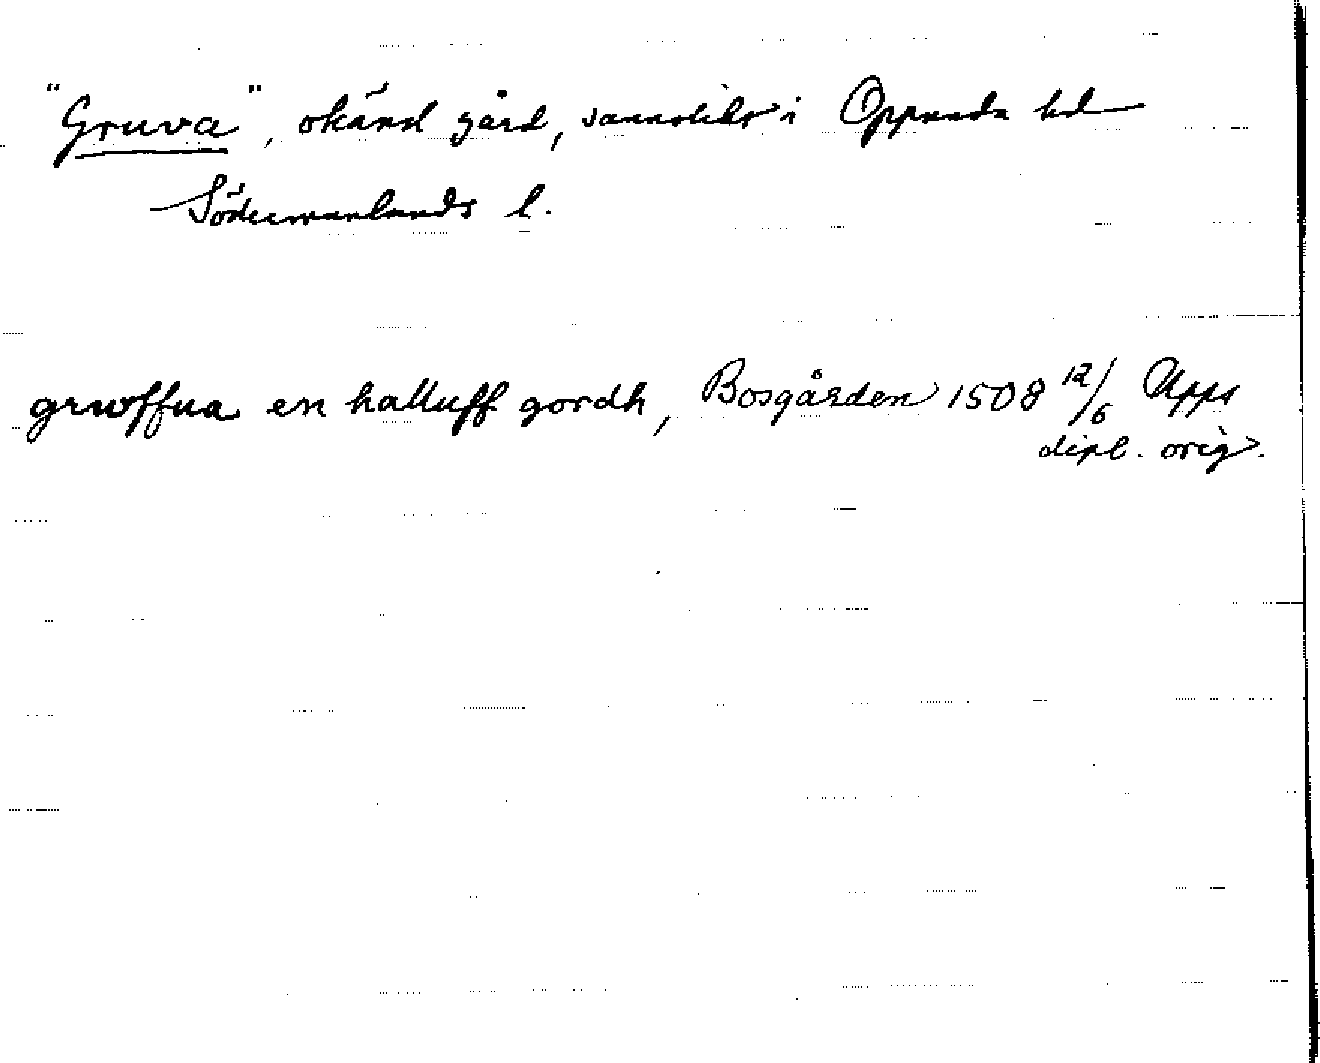 "Gruva", okänd gård, sannolikt i Oppunda hd
Södermanlands l.
grwffua en halluff gordh, Bosgården 1508 12/6 Upps
dipl. orig.